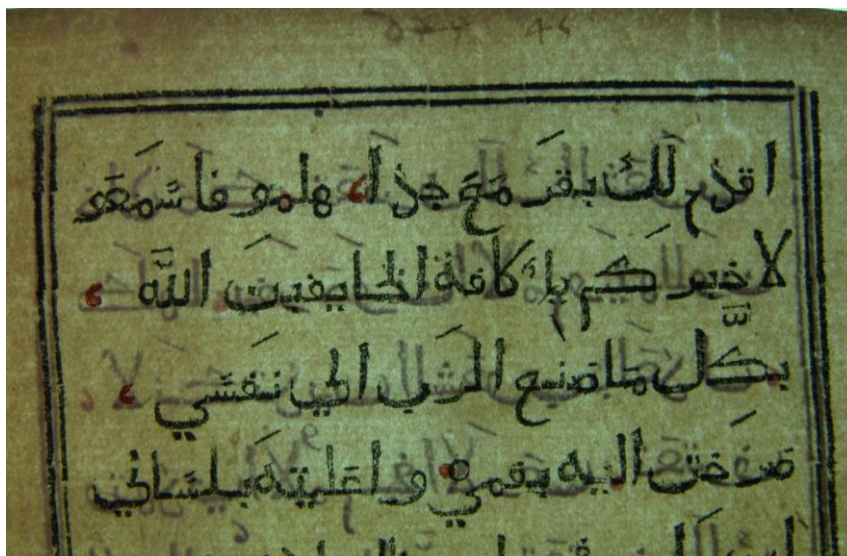 اقدم لك بقر مع جدا، هلمو فاسمعو
لاخبركم يا كافة الخايفين الله ،
بكل ما صنع الرب الي نفسي ،
صرخت اليه بفمي، واعليته بلساني